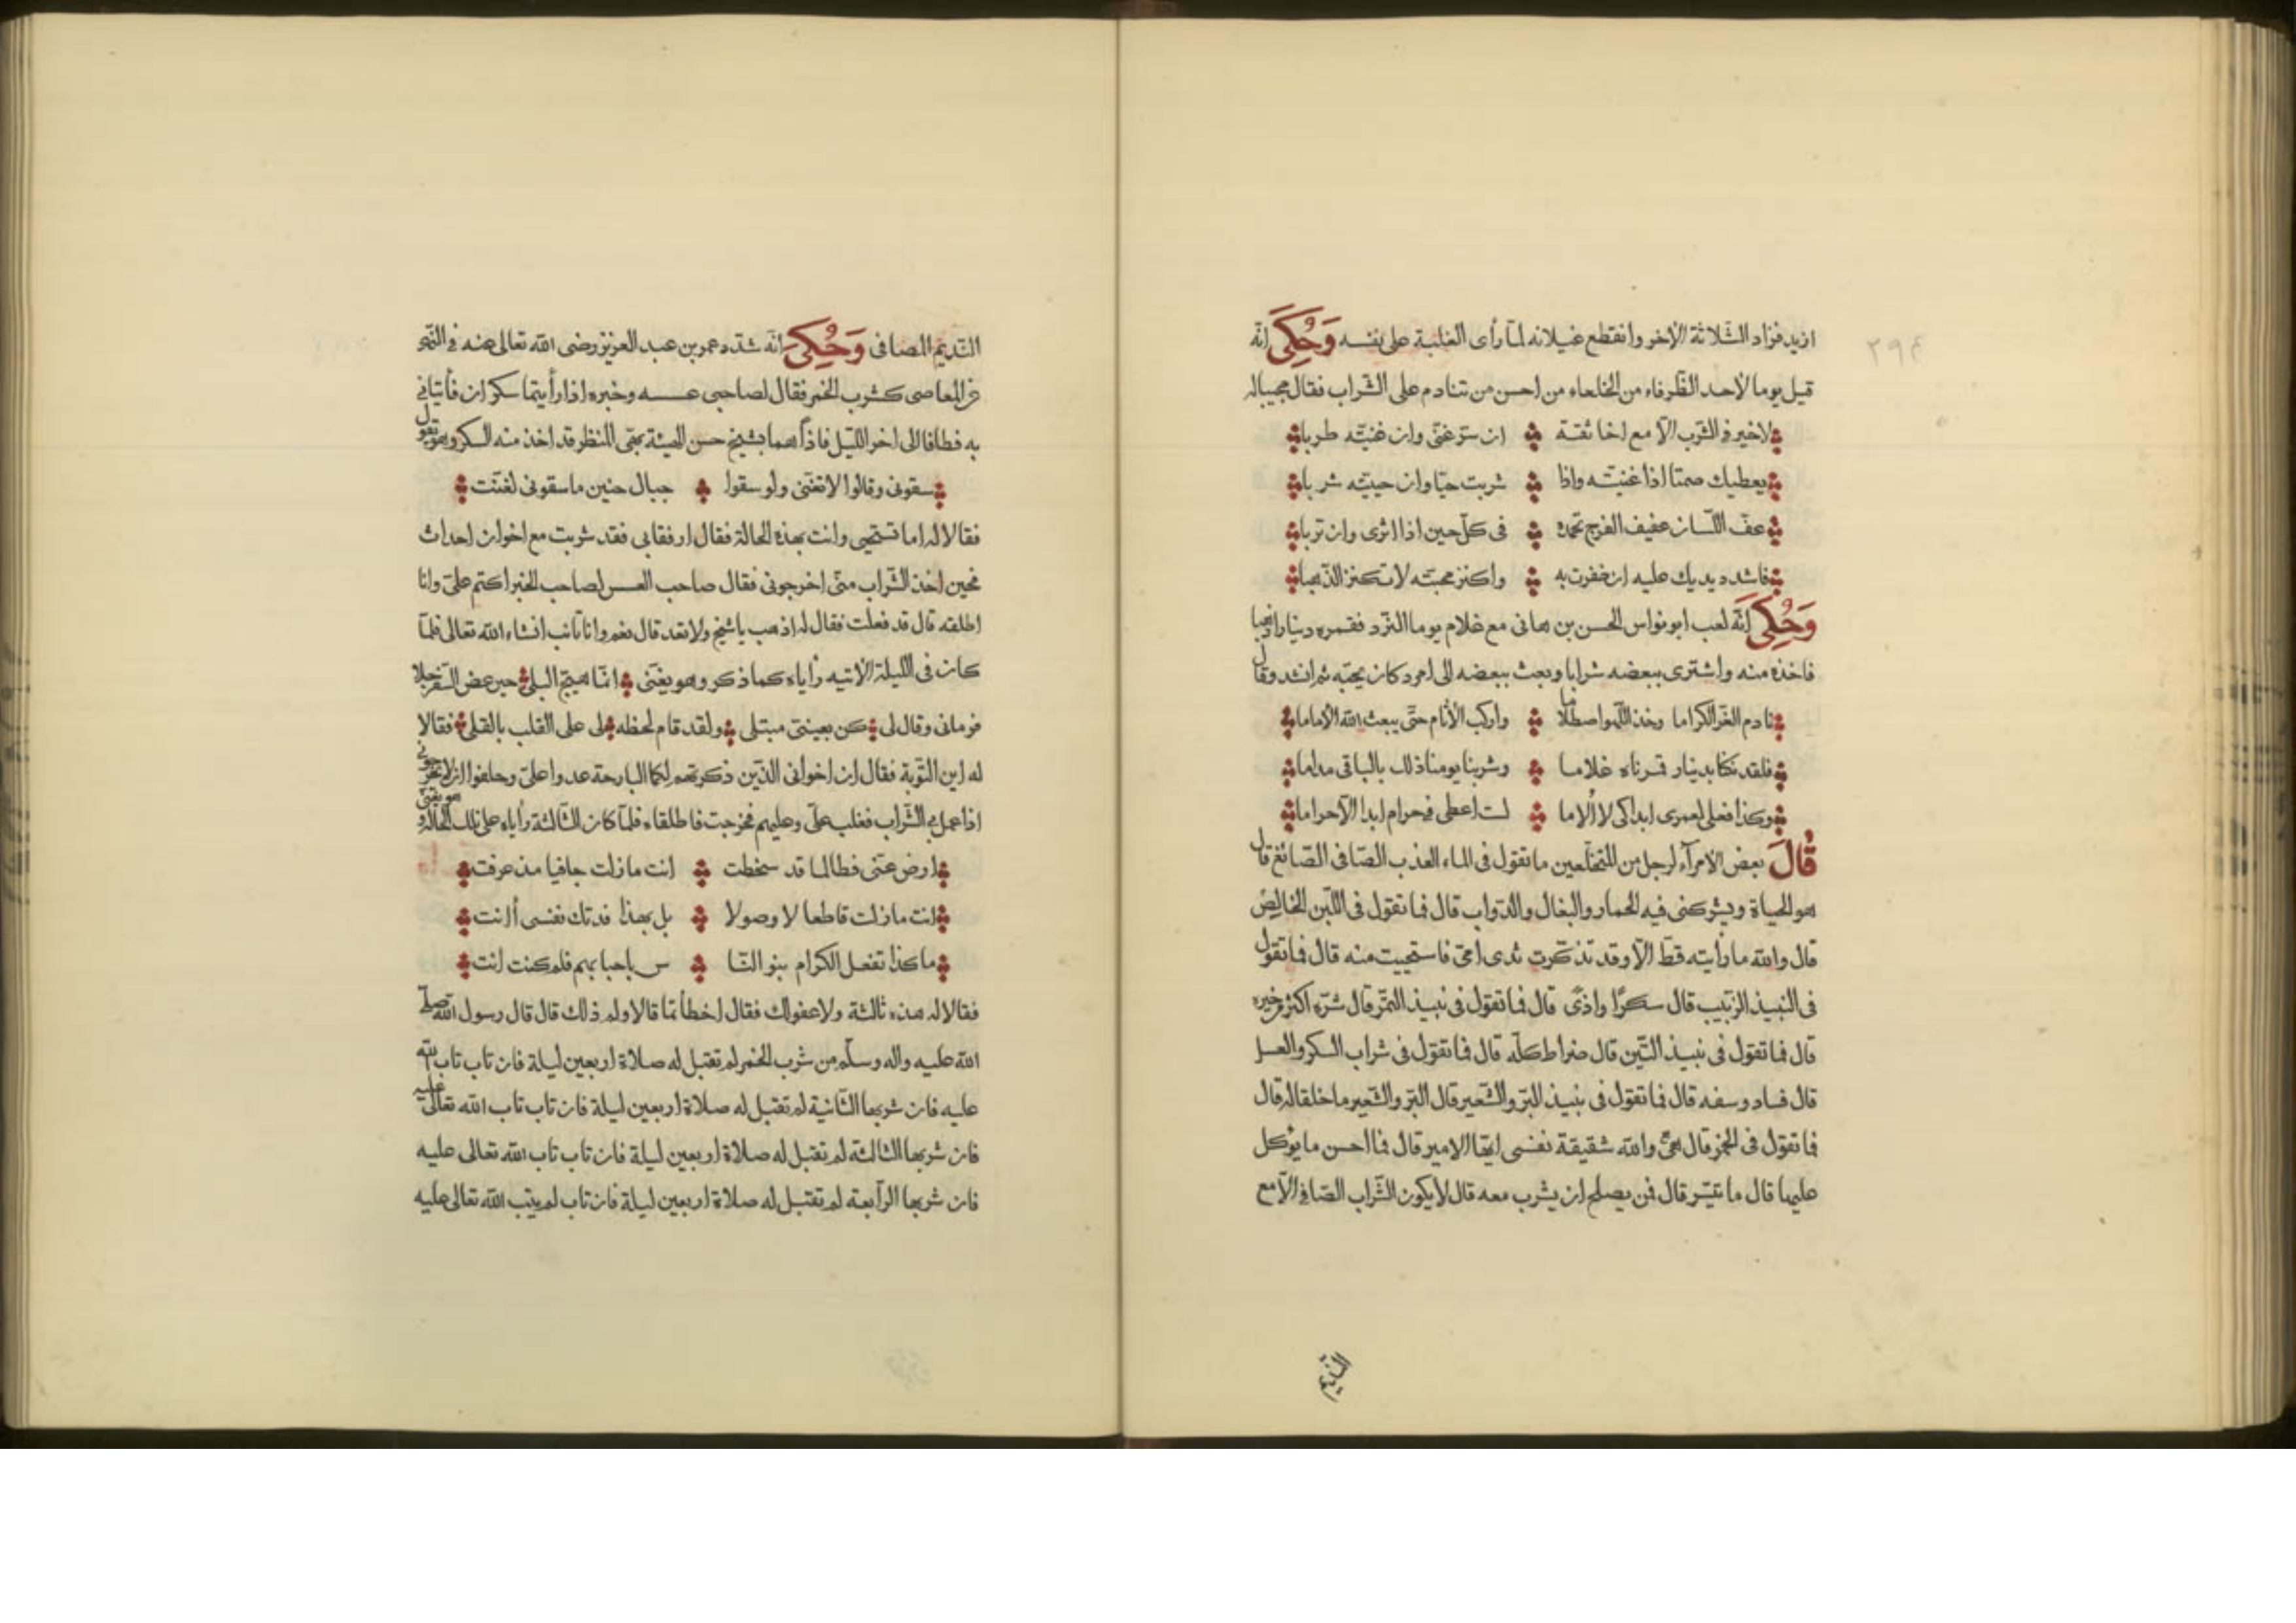 ازيد فزاد الثلاثة الاخر وانقطع غيلانه لما رأى الغلبة على نفسه وَحُكِىَ انّه
٢٩٤
قيل يوما لاحد الظرفاء من الخلعاء من احسن من تنادم على الشراب فقال مجيبا له
لاخير فى الشرب الا مع اخا ثقة ان ستر غنى وان غنيته طربا
يعطيك صمتا اذا غنيته واذا شربت حيا وان حييته شربا
عف اللسان عفيف الفرج تحمده فى كل حين اذا اثرى وان تربا
فاشدد يديك عليه ان ظفرت به واكنز محبته لا تكنز الذهبا
وَحُكِىَ انّه لعب ابو نواس الحسن بن هانى مع غلام يوما النرد فقمره دينارا ذهبا
فاخذه منه واشترى ببعضه شرابا وبعث ببعضه الى امرد كان يحبه ثم انشد وقال
نادم الغر الكراما وخذ اللهو اصطلاما واركب الآثام حتى يبعث الله الاماما
فلقد نكنا بدينار قمرناه غلاما وشربنا يومنا ذلك بالباقى مداما
وكذا فعلى لعمرى ابدا كى لا ألاما لست اعطى فى حرام ابدا الا حراما
قَالَ بعض الامرآء لرجل من المتخلعين ما تقول فى الماء العذب الصافى الصائغ قال
هو الحياة ويشركنى فيه الحمار والبغال والدواب قال فما تقول فى اللبن الخالص
قال والله ما رأيته قط الا وقد تذكرت ثدى امى فاستحييت منه قال فما تقول
فى النبيذ الزبيب قال سكرا واذى قال فما تقول فى نبيذ التمر قال شره اكثر من خيره
قال فما تقول فى نبيذ التين قال ضراط كله قال فما تقول فى شراب السكر والعسل
قال فساد وسفه قال فما تقول فى نبيذ البر والشعير قال البر والشعير ما خلقا له قال
فما تقول فى الخمر قال هى والله شقيقة نفسى ايها الامير قال فما احسن ما يؤكل
عليها قال ما تيسر قال فمن يصلح ان يشرب معه قال لا يكون الشراب الصافى الا مع
النديم
النديم المصافى وَحُكِىَ انّه شدد عمر بن عبد العزيز رضى الله تعالى عنه فى النهى
عن المعاصى كشرب الخمر فقال لصاحبى عسسه وخبره اذا رأيتما سكران فأتيانى
به فطافا الى اخر الليل فاذا هما بشيخ حسن الهيئة بهى المنظر قد اخذ منه السكر وهو يقول
سقونى وقالوا لا تغنى ولو سقوا جبال حنين ما سقونى لغنت
فقالا له اما تستحى وانت بهذه الحالة فقال ارفقا بى فقد شربت مع اخوان احداث
فحين اخذ الشراب منى اخرجونى فقال صاحب العسس لصاحب الخبر اكتم على وانا
اطلقه قال قد فعلت فقال له اذهب يا شيخ ولا تعد قال نعم وانا تائب انشاء الله تعالى فلما
كان فى الليلة الاتيه رأياه كما ذكر وهو يغنى انما هيج البلى حين عض السفرجلا
فرمانى وقال لى كن بعينى مبتلى ولقد قام لحظه لى على القلب بالقلى فقالا
له اين التوبة فقال ان اخوانى الذين ذكرتهم لكما البارحة عدوا على وحلفوا ان لا يخرجونى
اذا عمل بى الشراب فغلب على وعليهم فخرجت فاطلقاه فلما كان الثالثة رأياه على تلك الحالة وهو يغنى
ارض عنى فطالما قد سخطت انت مازلت جافيا مذ عرفت
انت مازلت قاطعا لا وصولا بل بهذا فدتك نفسى أانت
ما كذا تفعل الكرام بنو النا س باحبابهم فلم كنت انت
فقالا له هذه ثالثة ولا عفو لك فقال اخطأتما قالا ولم ذلك قال قال رسول الله صلى
الله عليه واله وسلم من شرب الخمر لم تقبل له صلاة اربعين ليلة فان تاب تاب الله
عليه فان شربها الثانية لم تقبل له صلاة اربعين ليلة فان تاب تاب الله تعالى عليه
فان شربها الثالثة لم تقبل له صلاة اربعين ليلة فان تاب تاب الله تعالى عليه
فان شربها الرابعة لم تقبل له صلاة اربعين ليلة فان تاب لم يتب الله تعالى عليه